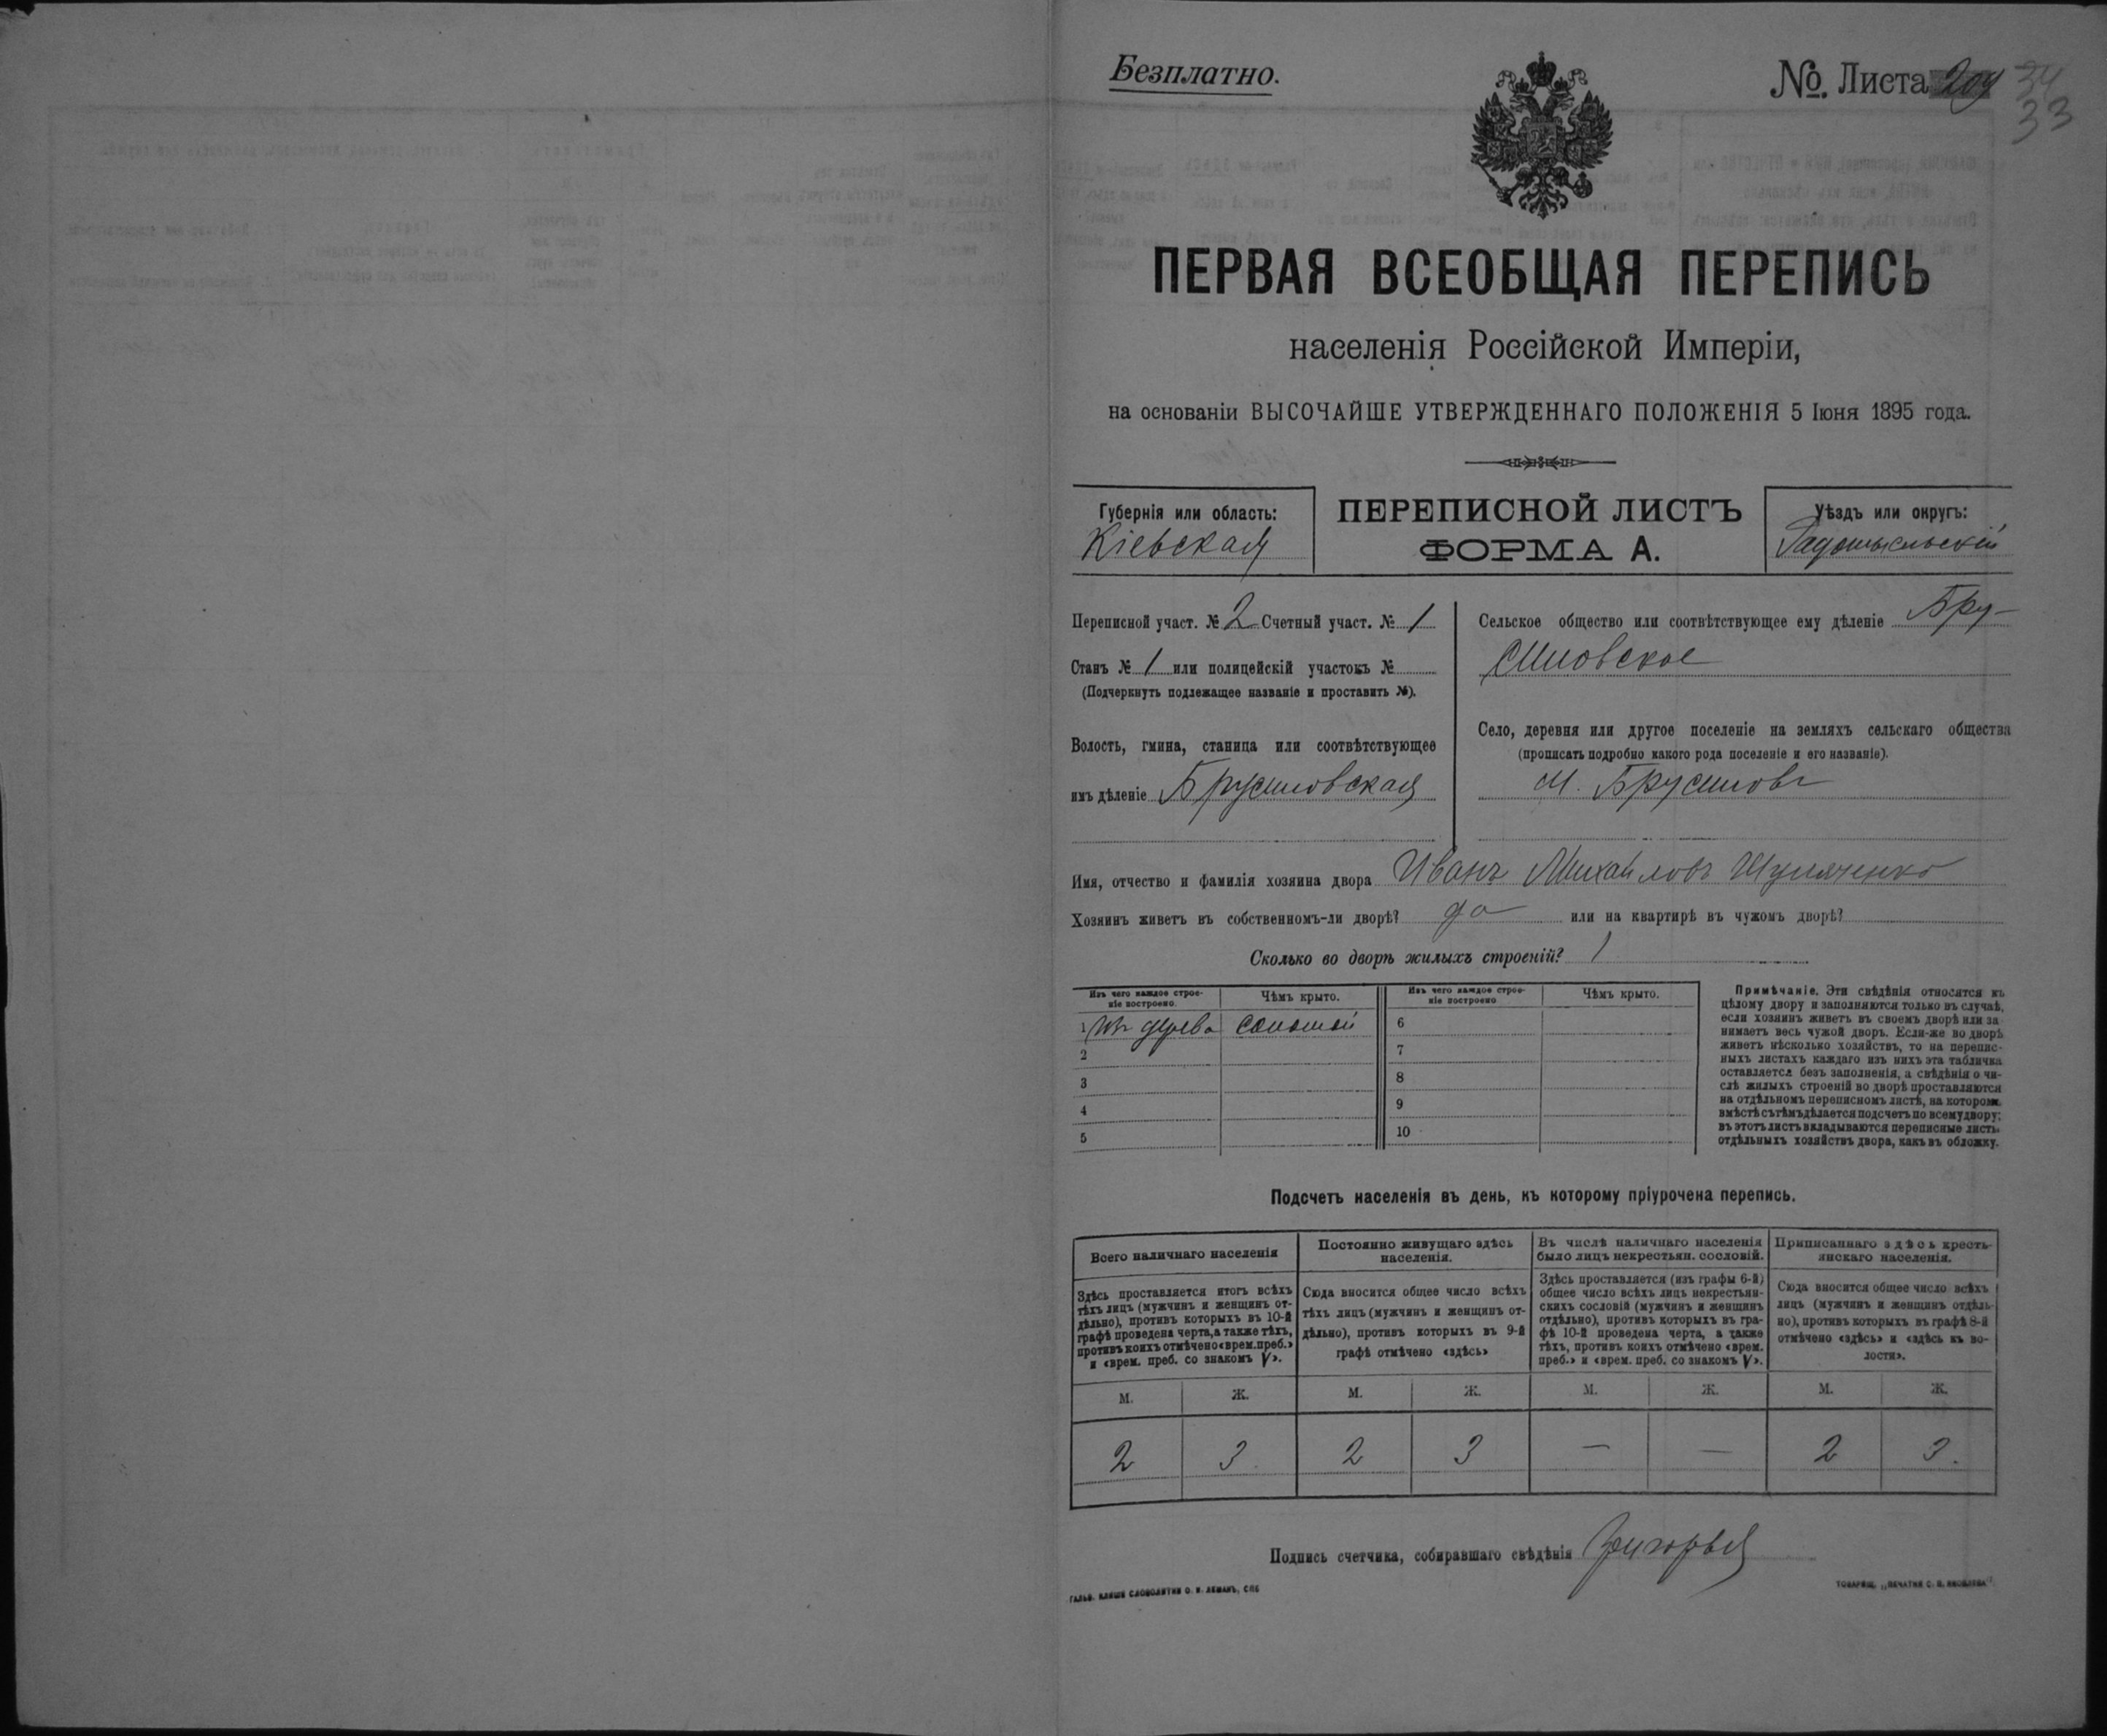 Безплатно.
№. Листа 209
34
33
ПЕРВАЯ ВСЕОБЩАЯ ПЕРЕПИСЬ
населенія Россійской Имперіи,
на основаніи ВЫСОЧАЙШЕ УТВЕРЖДЕННАГО ПОЛОЖЕНІЯ 5 Іюня 1895 года.
Губернія или область:
Кіевская
ПЕРЕПИСНОЙ ЛИСТЪ
ФОРМА А.
Уѣздъ или округъ:
Радомысльскій
Переписной участ. № 2 Счетный участ. № 1
Станъ № 1 или полицейскій участокъ №
(Подчеркнуть подлежащее названіе и проставить №).
Волость, гмина, станица или соотвѣтствующее
имъ дѣленіе Брусиловская
Сельское общество или соотвѣтствующее ему дѣленіе Бру-
силовское
Село, деревня или другое поселеніе на земляхъ сельскаго общества
(прописать подробно какого рода поселеніе и его названіе).
м. Брусиловъ
Имя, отчество и фамилія хозяина двора Иванъ Михайловъ
Хозяинъ живетъ въ собственномъ-ли дворѣ? да или на квартирѣ въ чужомъ дворѣ?
Сколько во дворѣ жилыхъ строеній? 1
Изъ чего каждое строе-
ніе построено.
Чѣмъ крыто.
Изъ чего каждое строе-
ніе построено
Чѣмъ крыто.
1 Изъ дерева соломой 6
2 7
3 8
4 9
5 10
Примѣчаніе. Эти свѣдѣнія относятся къ
цѣлому двору и заполняются только въ случаѣ,
если хозяинъ живетъ въ своемъ дворѣ или за
нимаетъ весь чужой дворъ. Если-же во дворѣ
живетъ нѣсколько хозяйствъ, то на перепис-
ныхъ листахъ каждаго изъ нихъ эта табличка
оставляется безъ заполненія, а свѣдѣнія о чи-
слѣ жилыхъ строеній во дворѣ проставляются
на отдѣльномъ переписномъ листѣ, на которомъ
вмѣстѣ съ тѣмъ дѣлается подсчетъ по всему двору;
въ этотъ листъ вкладываются переписные листы
отдѣльныхъ хозяйствъ двора, какъ въ обложку.
Подсчетъ населенія въ день, къ которому пріурочена перепись.
Всего наличнаго населенія
Здѣсь проставляется итогъ всѣхъ
тѣхъ лицъ (мужчинъ и женщинъ от-
дѣльно), противъ которыхъ въ 10-й
графѣ проведена черта, а также тѣхъ,
противъ коихъ отмѣчено «врем. преб.»
и «врем. преб. со знакомъ V».
Постоянно живущаго здѣсь
населенія.
Сюда вносится общее число всѣхъ
тѣхъ лицъ (мужчинъ и женщинъ от-
дѣльно), противъ которыхъ въ 9-й
графѣ отмѣчено «здѣсь»
Въ числѣ наличнаго населенія
было лицъ некрестьян. сословій.
Здѣсь проставляется (изъ графы 6-й)
общее число всѣхъ лицъ некрестьян-
скихъ сословій (мужчинъ и женщинъ
отдѣльно), противъ которыхъ въ гра-
фѣ 10-й проведена черта, а также
тѣхъ, противъ коихъ отмѣчено «врем.
преб.» и «врем. преб. со знакомъ V».
Приписаннаго здѣсь кресть-
янскаго населенія.
Сюда вносится общее число всѣхъ
лицъ (мужчинъ и женщинъ отдѣль-
но), противъ которыхъ въ графѣ 8-й
отмѣчено «здѣсь» и «здѣсь къ во-
лости».
М. Ж. М. Ж. М. Ж. М. Ж.
2 3. 2 3 — — 2 3.
Подпись счетчика, собиравшаго свѣдѣнія
ГАЛЬВ. КЛИШЕ СЛОВОЛИТНИ О. И. ЛЕМАНЪ, СПБ
ТОВАРИЩ. „ПЕЧАТНЯ С. П. ЯКОВЛЕВА“